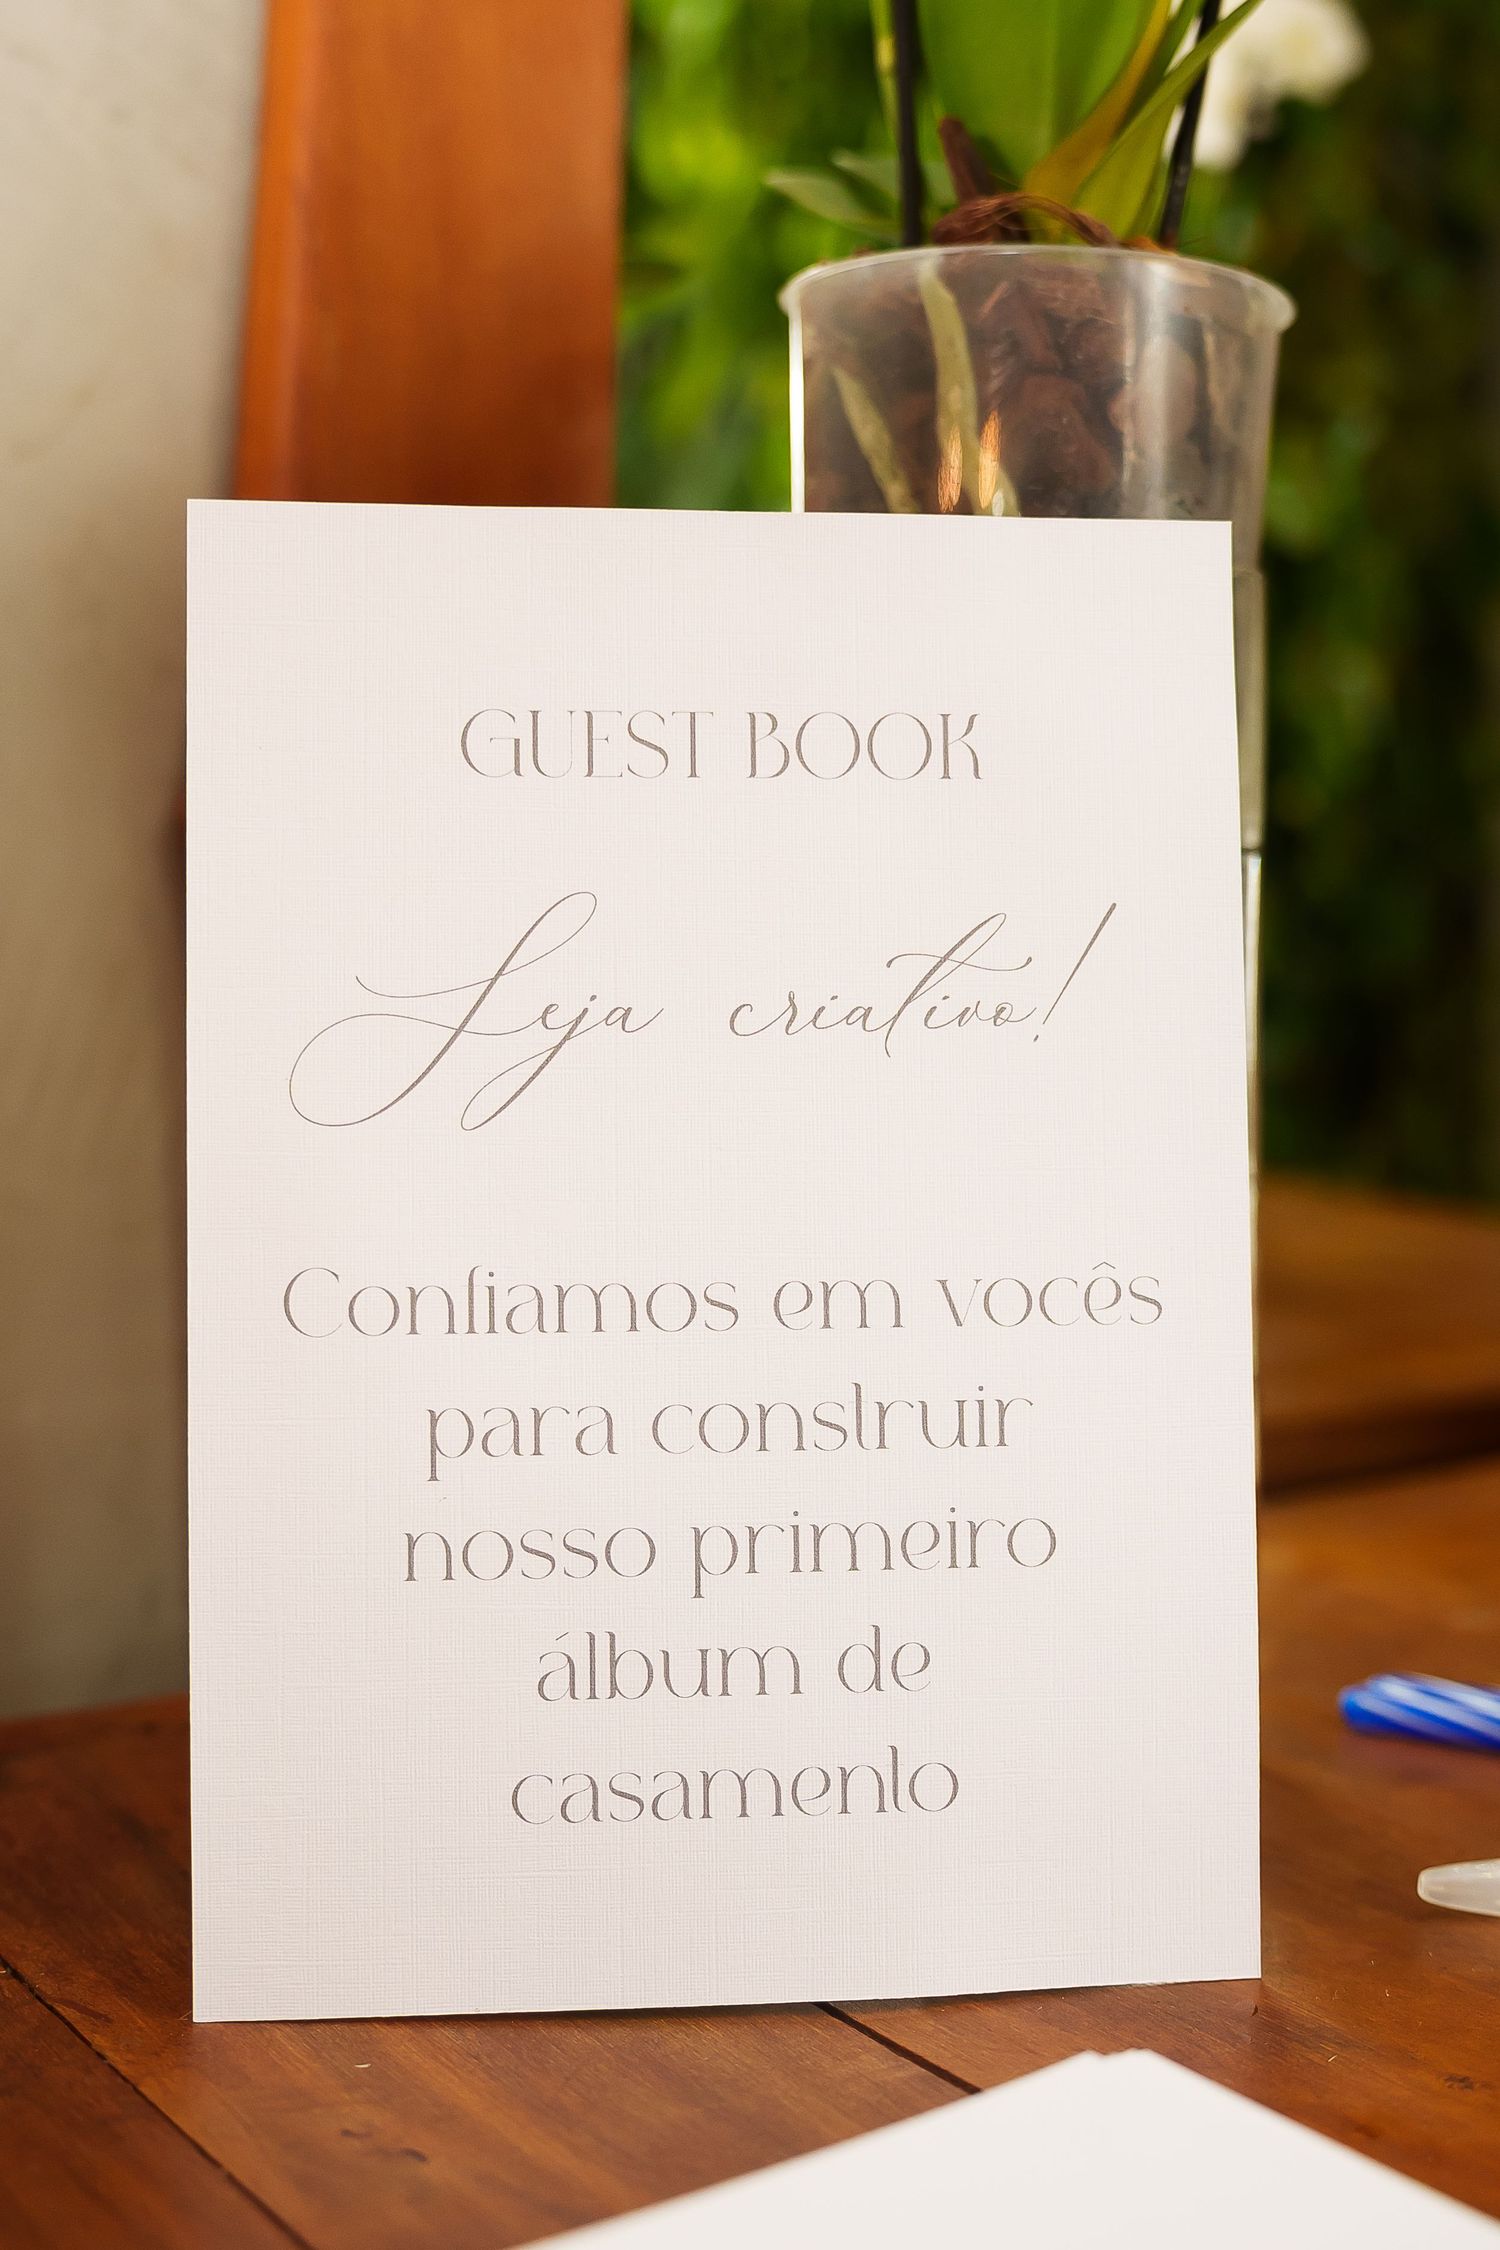 GUEST BOOK
Seja criativo!
Confiamos em vocês
para construir
nosso primeiro
álbum de
casamento